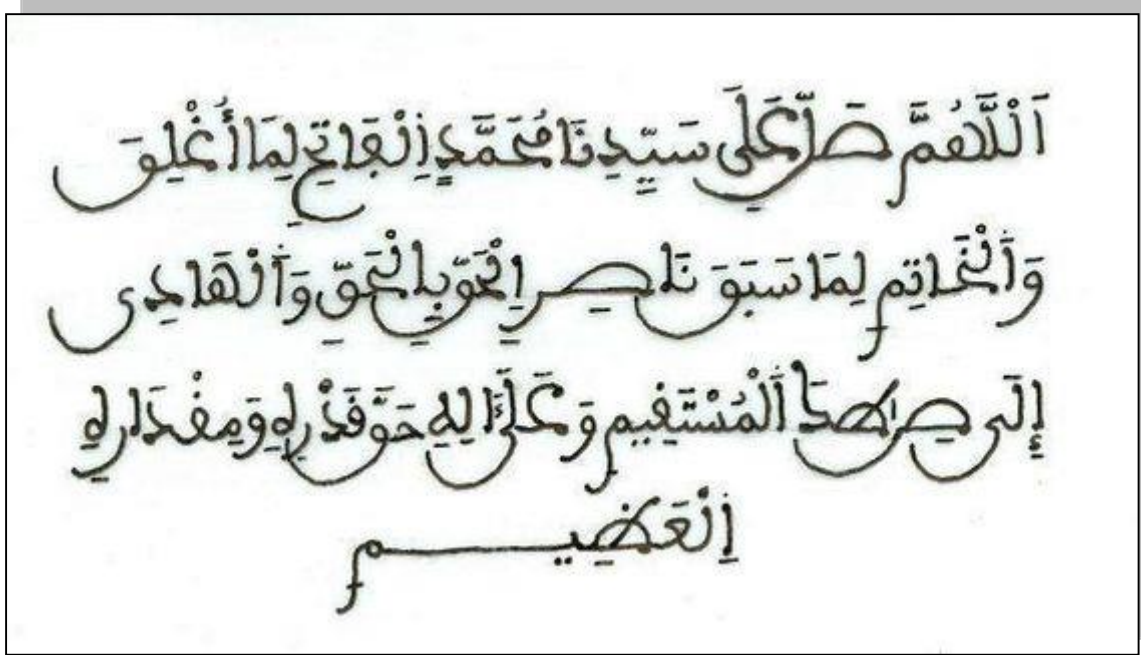 اَللَّهُمَّ صَلِّ عَلَى سَيِّدِنَا مُحَمَّدٍ اِلْفَاتِحِ لِمَا أُغْلِقَ
وَالْخَاتِمِ لِمَا سَبَقَ نَاصِرِ اِلْحَقِّ بِالْحَقِّ وَالْهَادِى
إِلَى صِرَاطِكَ اَلْمُسْتَقِيمِ وَعَلَى ءَالِهِ حَقَّ قَدْرِهِ وَمِقْدَارِهِ
اِلْعَظِيمِ